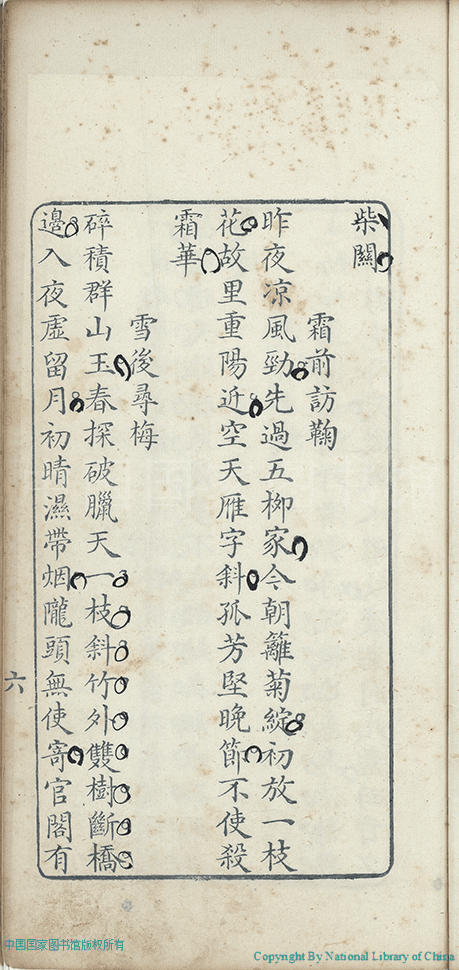 柴關
霜前訪鞠
昨夜凉風勁先過五柳家今朝籬菊綻初放一枝
花故里重陽近空天雁字斜孤芳堅晚節不使殺
霜華
雪後尋梅
碎積群山玉春探破臘天一枝斜竹外雙樹斷橋
邊入夜虛留月初晴濕帶烟隴頭無使寄官閣有
六
中国国家图书馆版权所有
Copyright By National Library of China